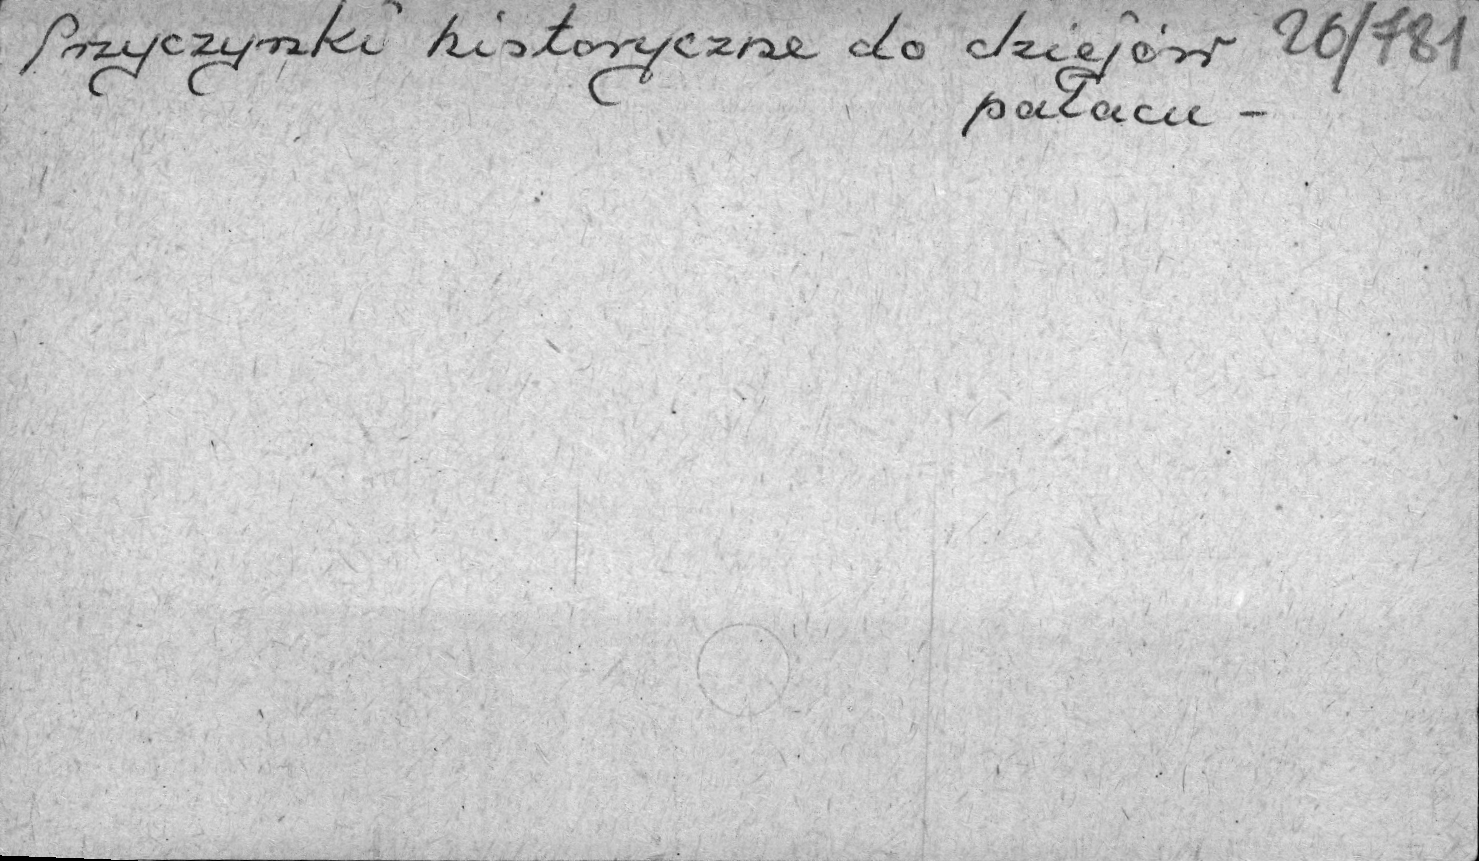 Przyczynki historyczne do dziejów 26/781
pałacu -